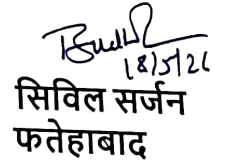 18/5/26
सिविल सर्जन
फतेहाबाद